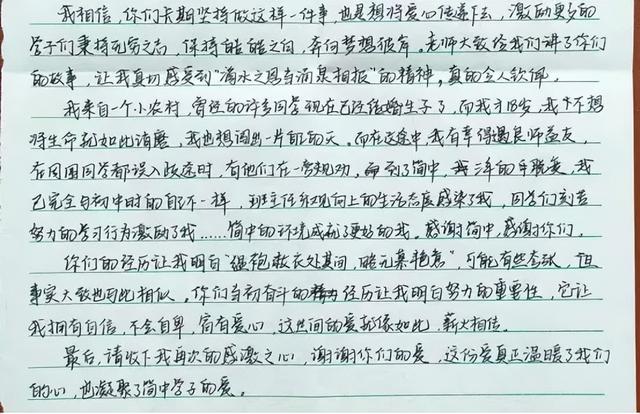 我相信，你们长期坚持做这样一件事，也是想将爱心传递下去，激励更多的
学子们秉持无穷之志，保持皓皓之白，奔向梦想彼岸。老师大致给我们讲了你们
的故事，让我真切感受到“滴水之恩当涌泉相报”的精神，真的令人钦佩。
我来自一个小农村，曾经的许多同学现在已经结婚生子了，而我才18岁，我不想
将生命就如此消磨，我也想闯出一片自己的天。而在这途中，我有幸得遇良师益友，
在周围同学都误入歧途时，有他们在一旁规劝，到了简中，我三年的蜕变，我
已完全与初中时的自己不一样，班主任乐观向上的生活态度感染了我，同学们刻苦
努力的学习行为激励了我……简中的环境成就了更好的我。感谢简中，感谢你们。
你们的经历让我明白“缊袍敝衣处其间，略无慕艳意”，可能有些夸张，但
事实大致也与此相似。你们当初奋斗的经历让我明白努力的重要性，它让
我拥有自信，不会自卑，富有爱心，这世间的爱就像如此，薪火相传。
最后，请收下我再次的感激之心，谢谢你们的爱，这份爱真正温暖了我们
的心，也凝聚了简中学子的爱。